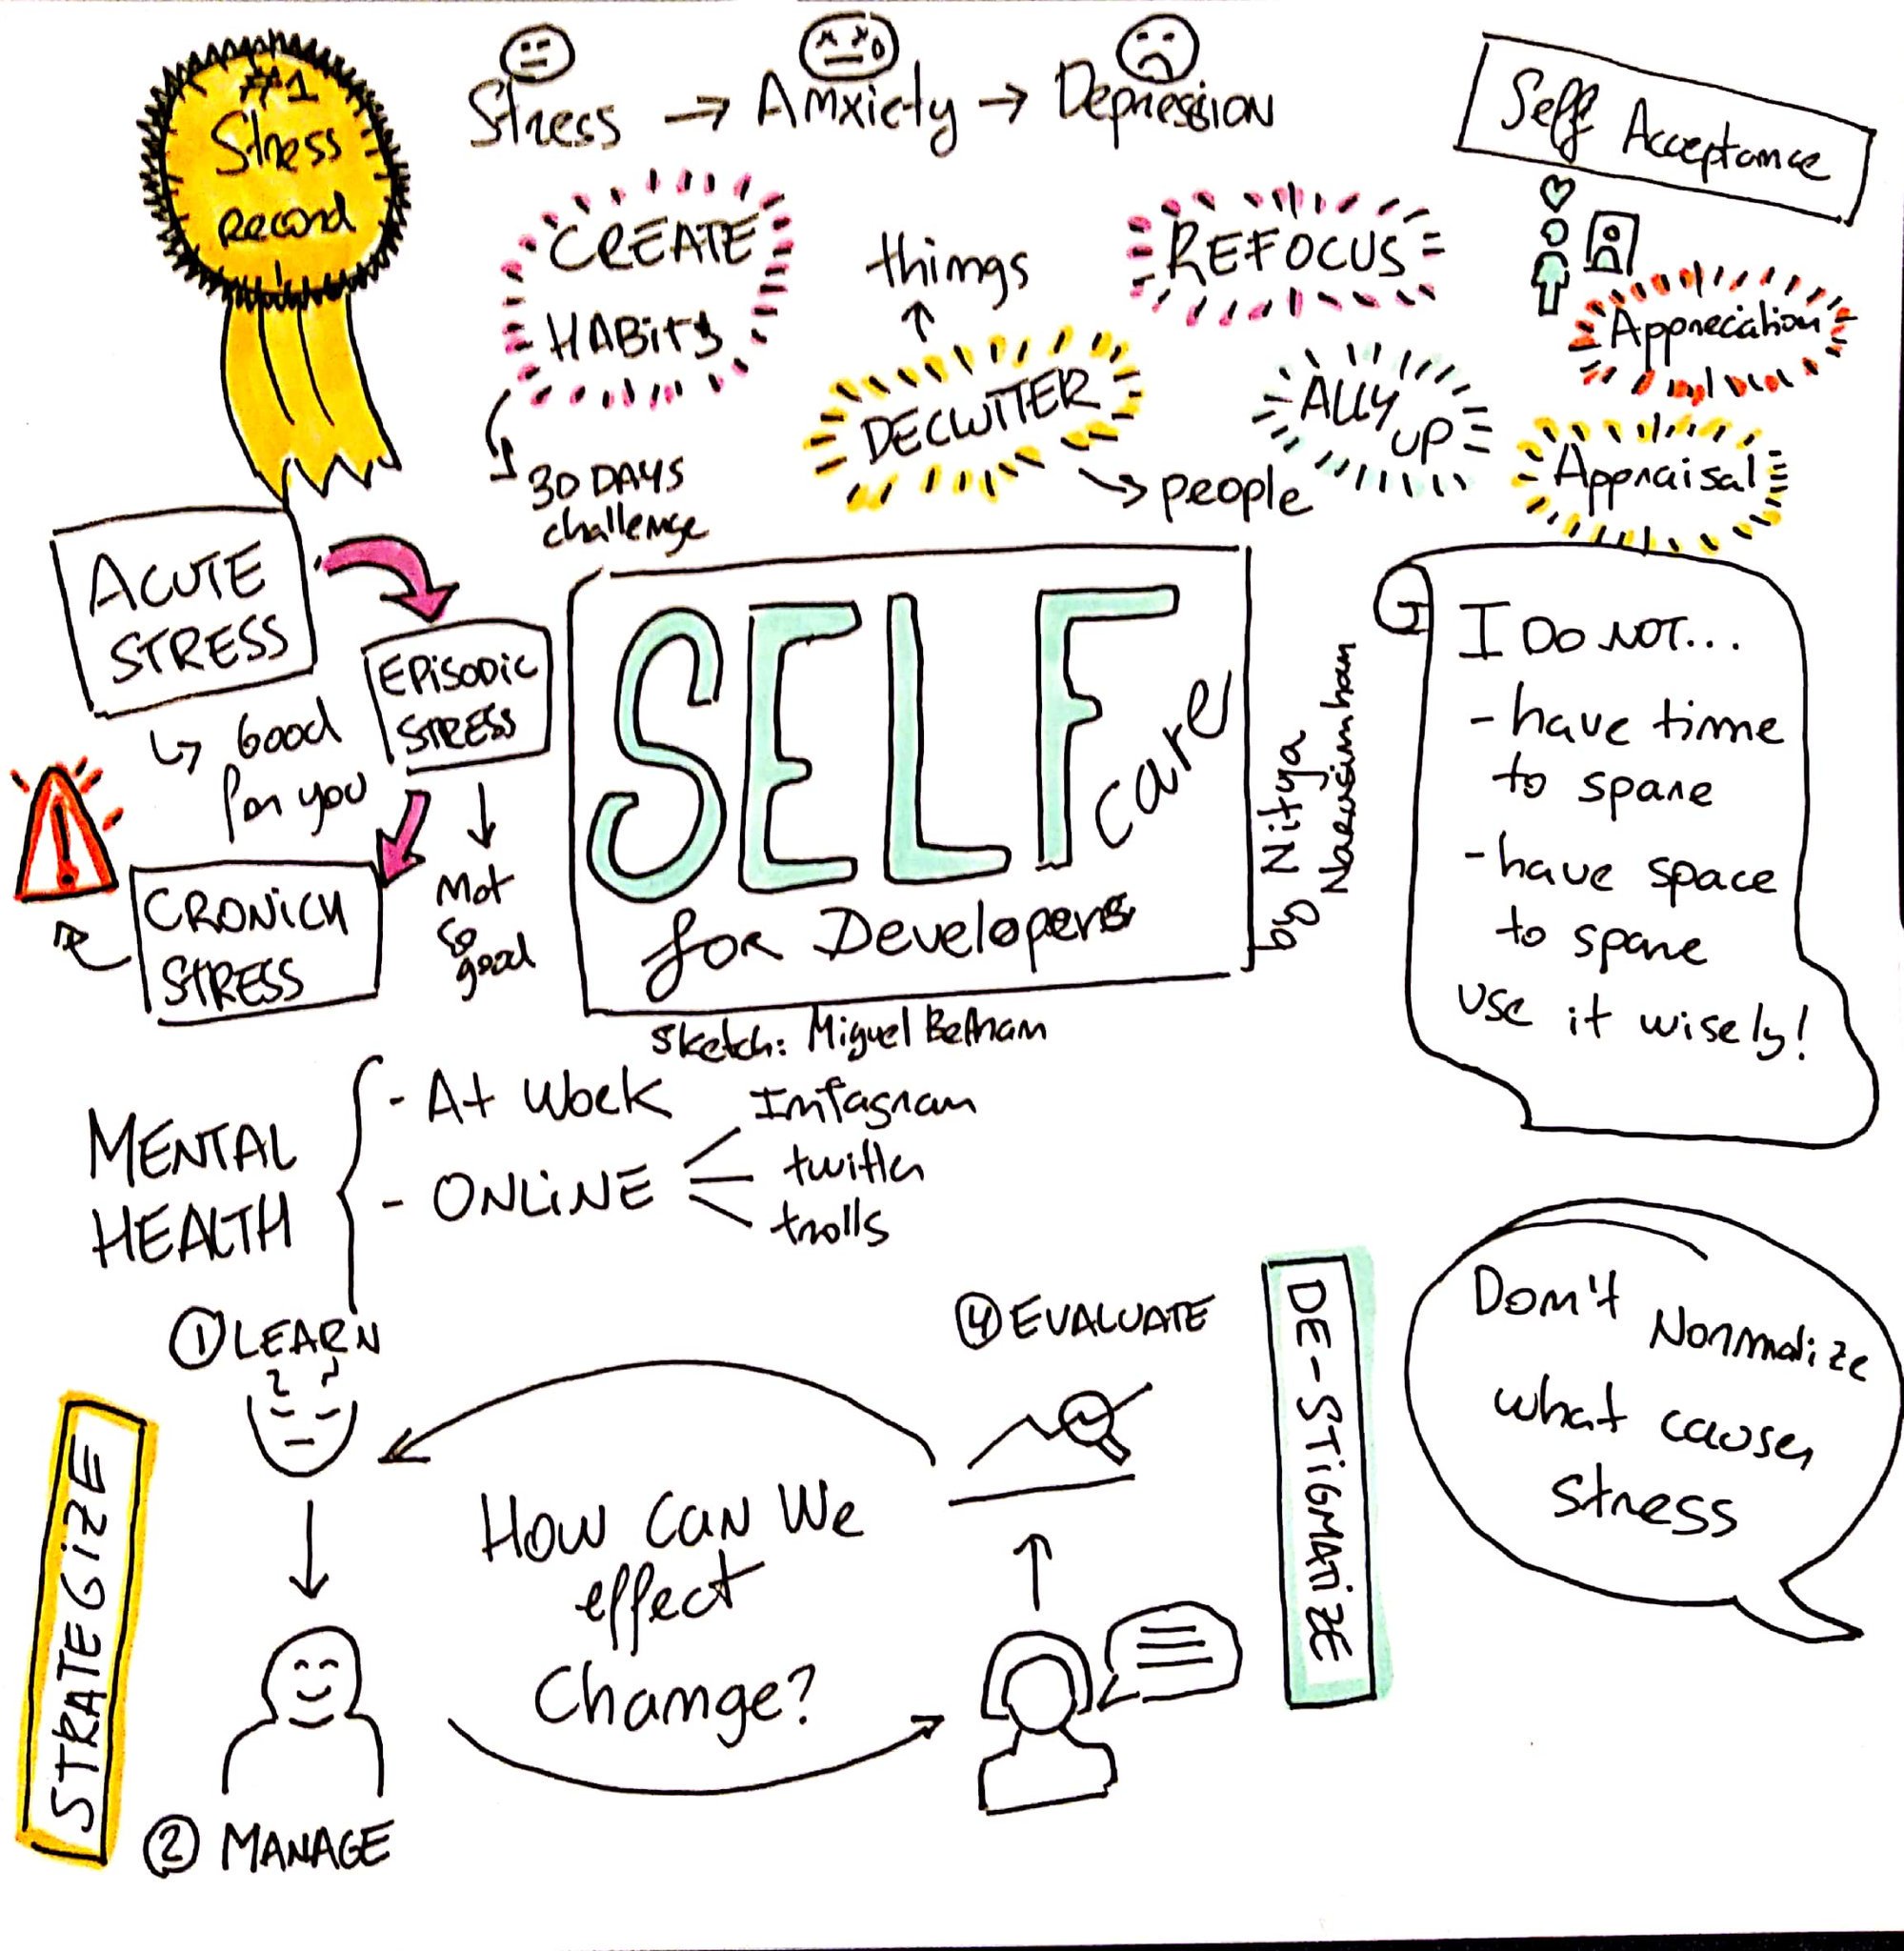 #1
Stress
Record
Stress → Anxiety → Depression
Self Acceptance
CREATE
HABITS
30 DAYS
challenge
things
DECLUTTER
people
REFOCUS
ALLY
UP
Appreciation
Appraisal
ACUTE
STRESS
Good
for you
EPISODIC
STRESS
Not
so
good
CRONICH
STRESS
SELF
care
for Developers
by Nitya
Narasimhan
Sketch: Miguel
I DO NOT...
- have time
to spare
- have space
to spare
use it wisely!
MENTAL
HEALTH
- At Work
- ONLINE
Instagram
twitter
trolls
1 LEARN
2 MANAGE
4 EVALUATE
STRATEGIZE
How Can We
effect
Change?
DE-STIGMATIZE
Don't Normalize
what causes
stress